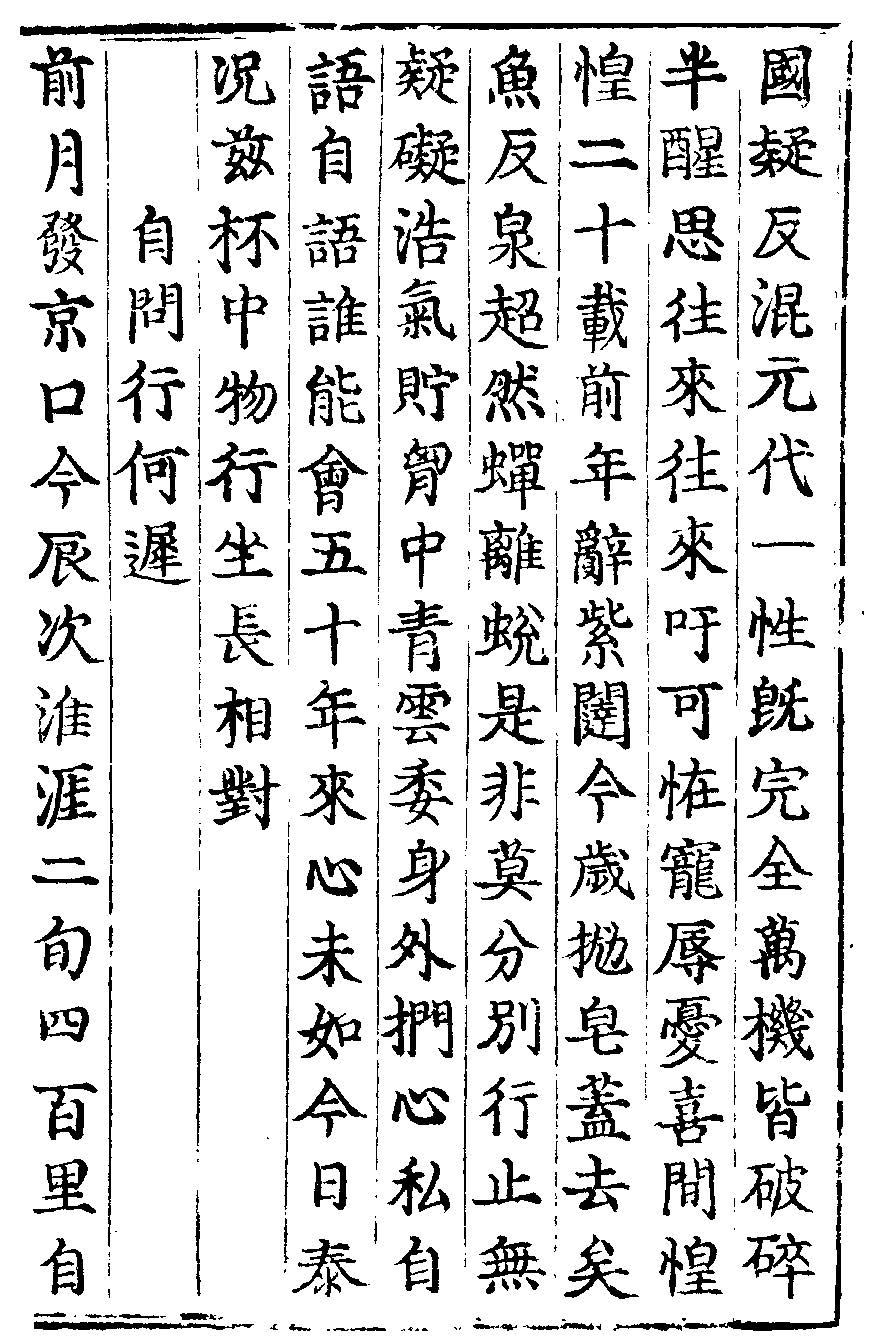 國疑反混元代一性旣完全萬機皆破碎
半醒思往來往來吁可恠寵辱憂喜間惶
惶二十載前年辭紫闥今歲拋皂蓋去矣
魚反泉超然蟬離蛻是非莫分別行止無
疑礙浩氣貯胷中青雲委身外捫心私自
語自語誰能會五十年來心未如今日泰
况兹杯中物行坐長相對
自問行何遲
前月發京口今辰次淮涯二旬四百里自